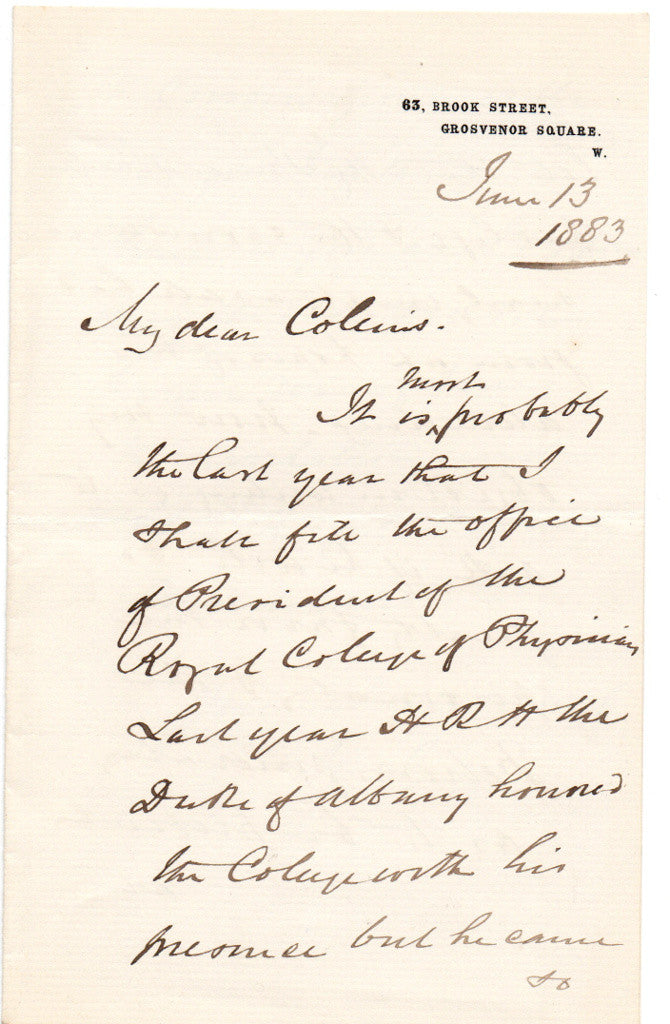 63, BROOK STREET,
GROSVENOR SQUARE.
W.
June 13
1883
My dear Collins.
most
It is probably
the last year that I
shall fill the office
of President of the
Royal College of Physicians
Last year H R H the
Duke of Albany honored
the College with his
presence but he came
to